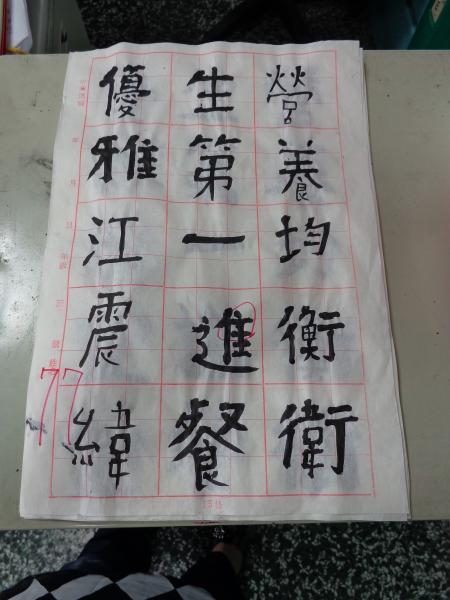 營養均衡衛
生第一進餐
優雅江震緯
77